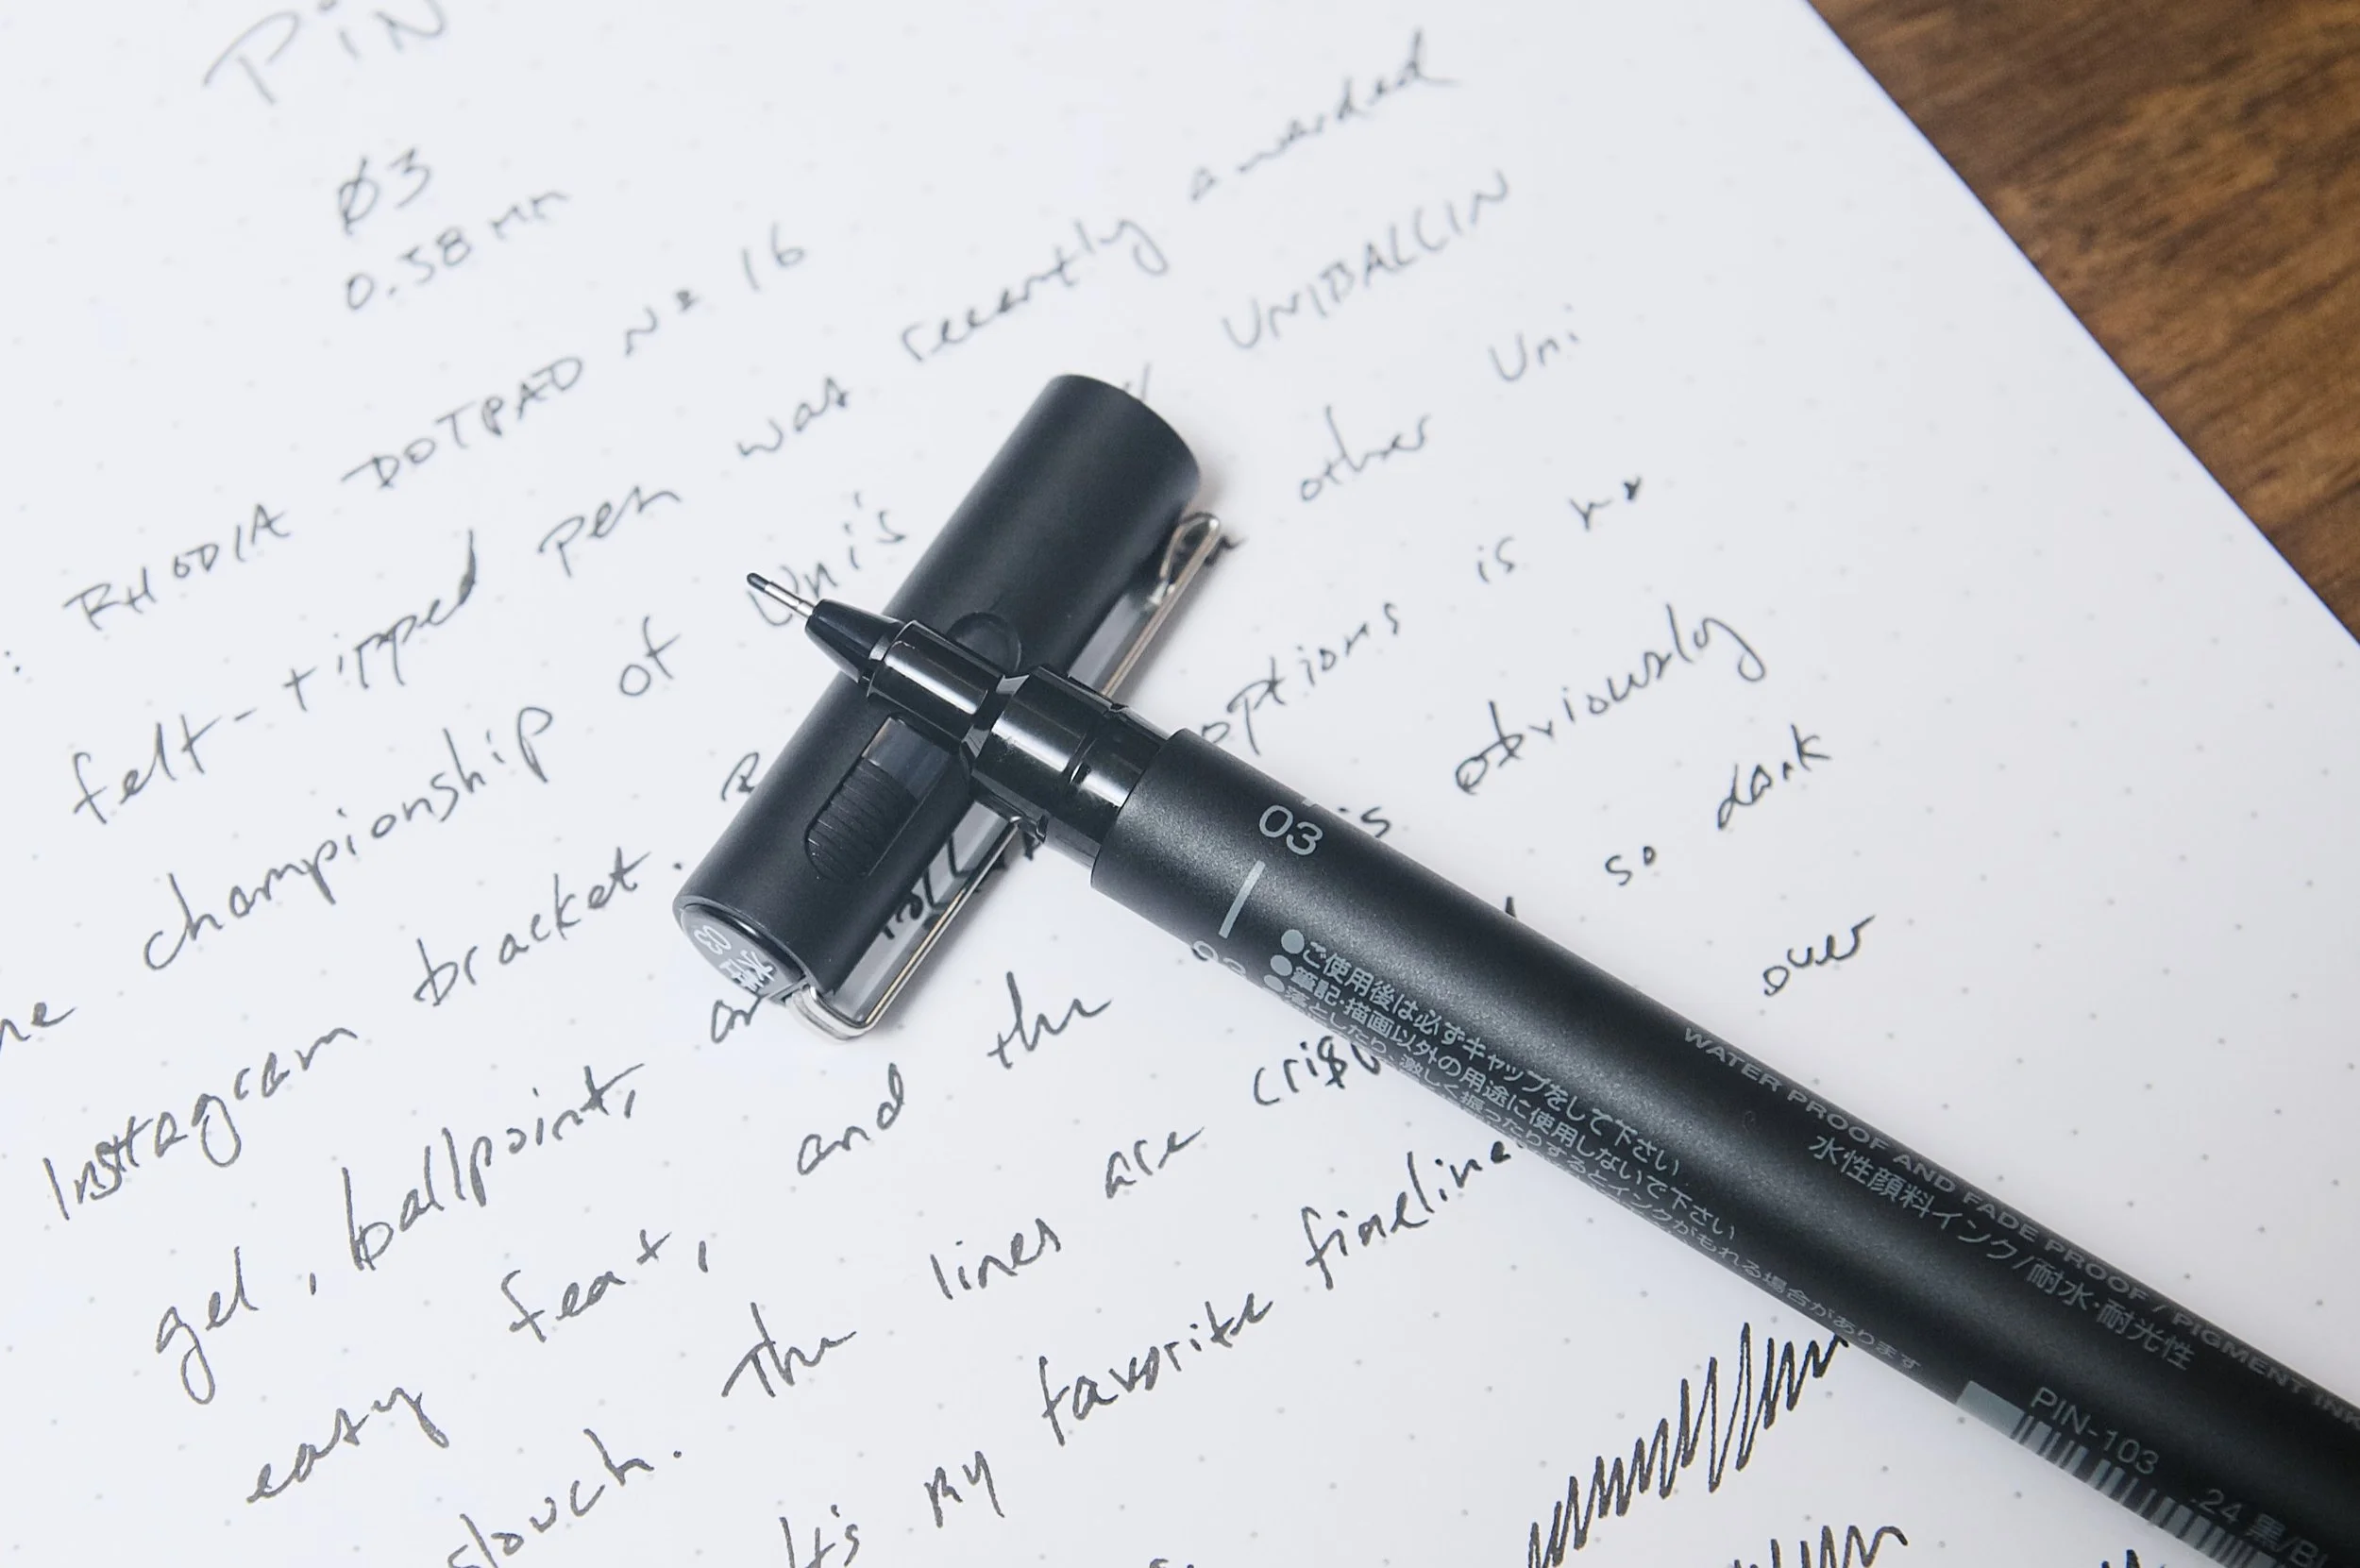 PiN
Ø3
0.38 mm
: RHODIA DOTPAD Nº 16
felt-tipped pen was recently awarded
championship of Uni's UNIBALLCIN
Instagram bracket. other Uni
gel, ballpoint, options is no
easy feat, and the is obviously
slouch. The lines are crisp so dark
It's my favorite fineline over
03
水性
03
03
●ご使用後は必ずキャップをして下さい
●筆記・描画以外の用途に使用しないで下さい
●落としたり、激しく振ったりするとインクがもれる場合があります
WATER PROOF AND FADE PROOF / PIGMENT INK
水性顔料インク/耐水・耐光性
PIN-103
.24 黒/B